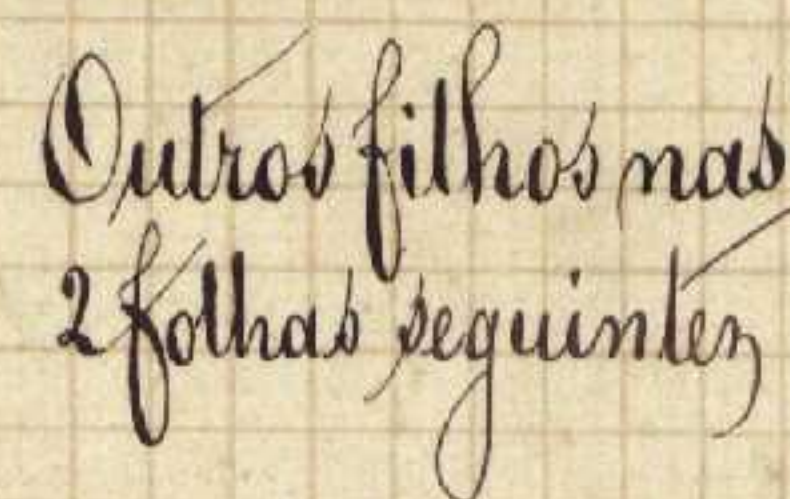 Outros filhos nas
2 folhas seguintez